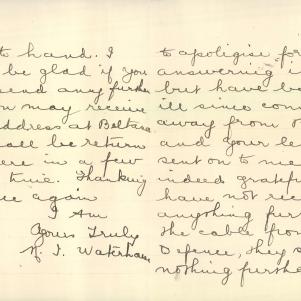 to hand. I
be glad if you
send any further
you may receive
address at Beltana
shall be return
here in a few
time. Thanking
once again
I Am
Yours Truly
N. J. Waterhouse
to apoligise for
answering
but have be
ill since com
away from
and your le
sent on to me
indeed grateful
have not rec
anything fur
the cable from
Defence, they s
nothing further